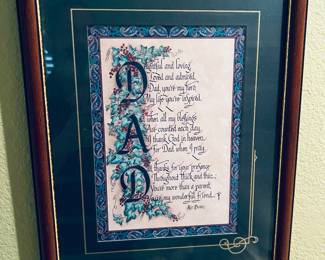 Dutiful and loving
Loved and admired,
Dad, you're my hero,
My life you've inspired.
When all my blessings
Are counted each day,
I thank God in heaven
For Dad when I pray.
thanks for your presence
Throughout thick and thin...
You're more than a parent,
You're my wonderful friend...